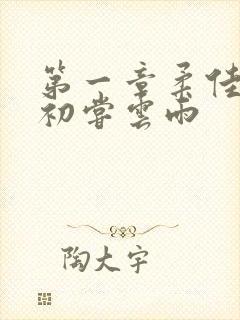 第一章柔佳
初嘗雲雨
陶大宇